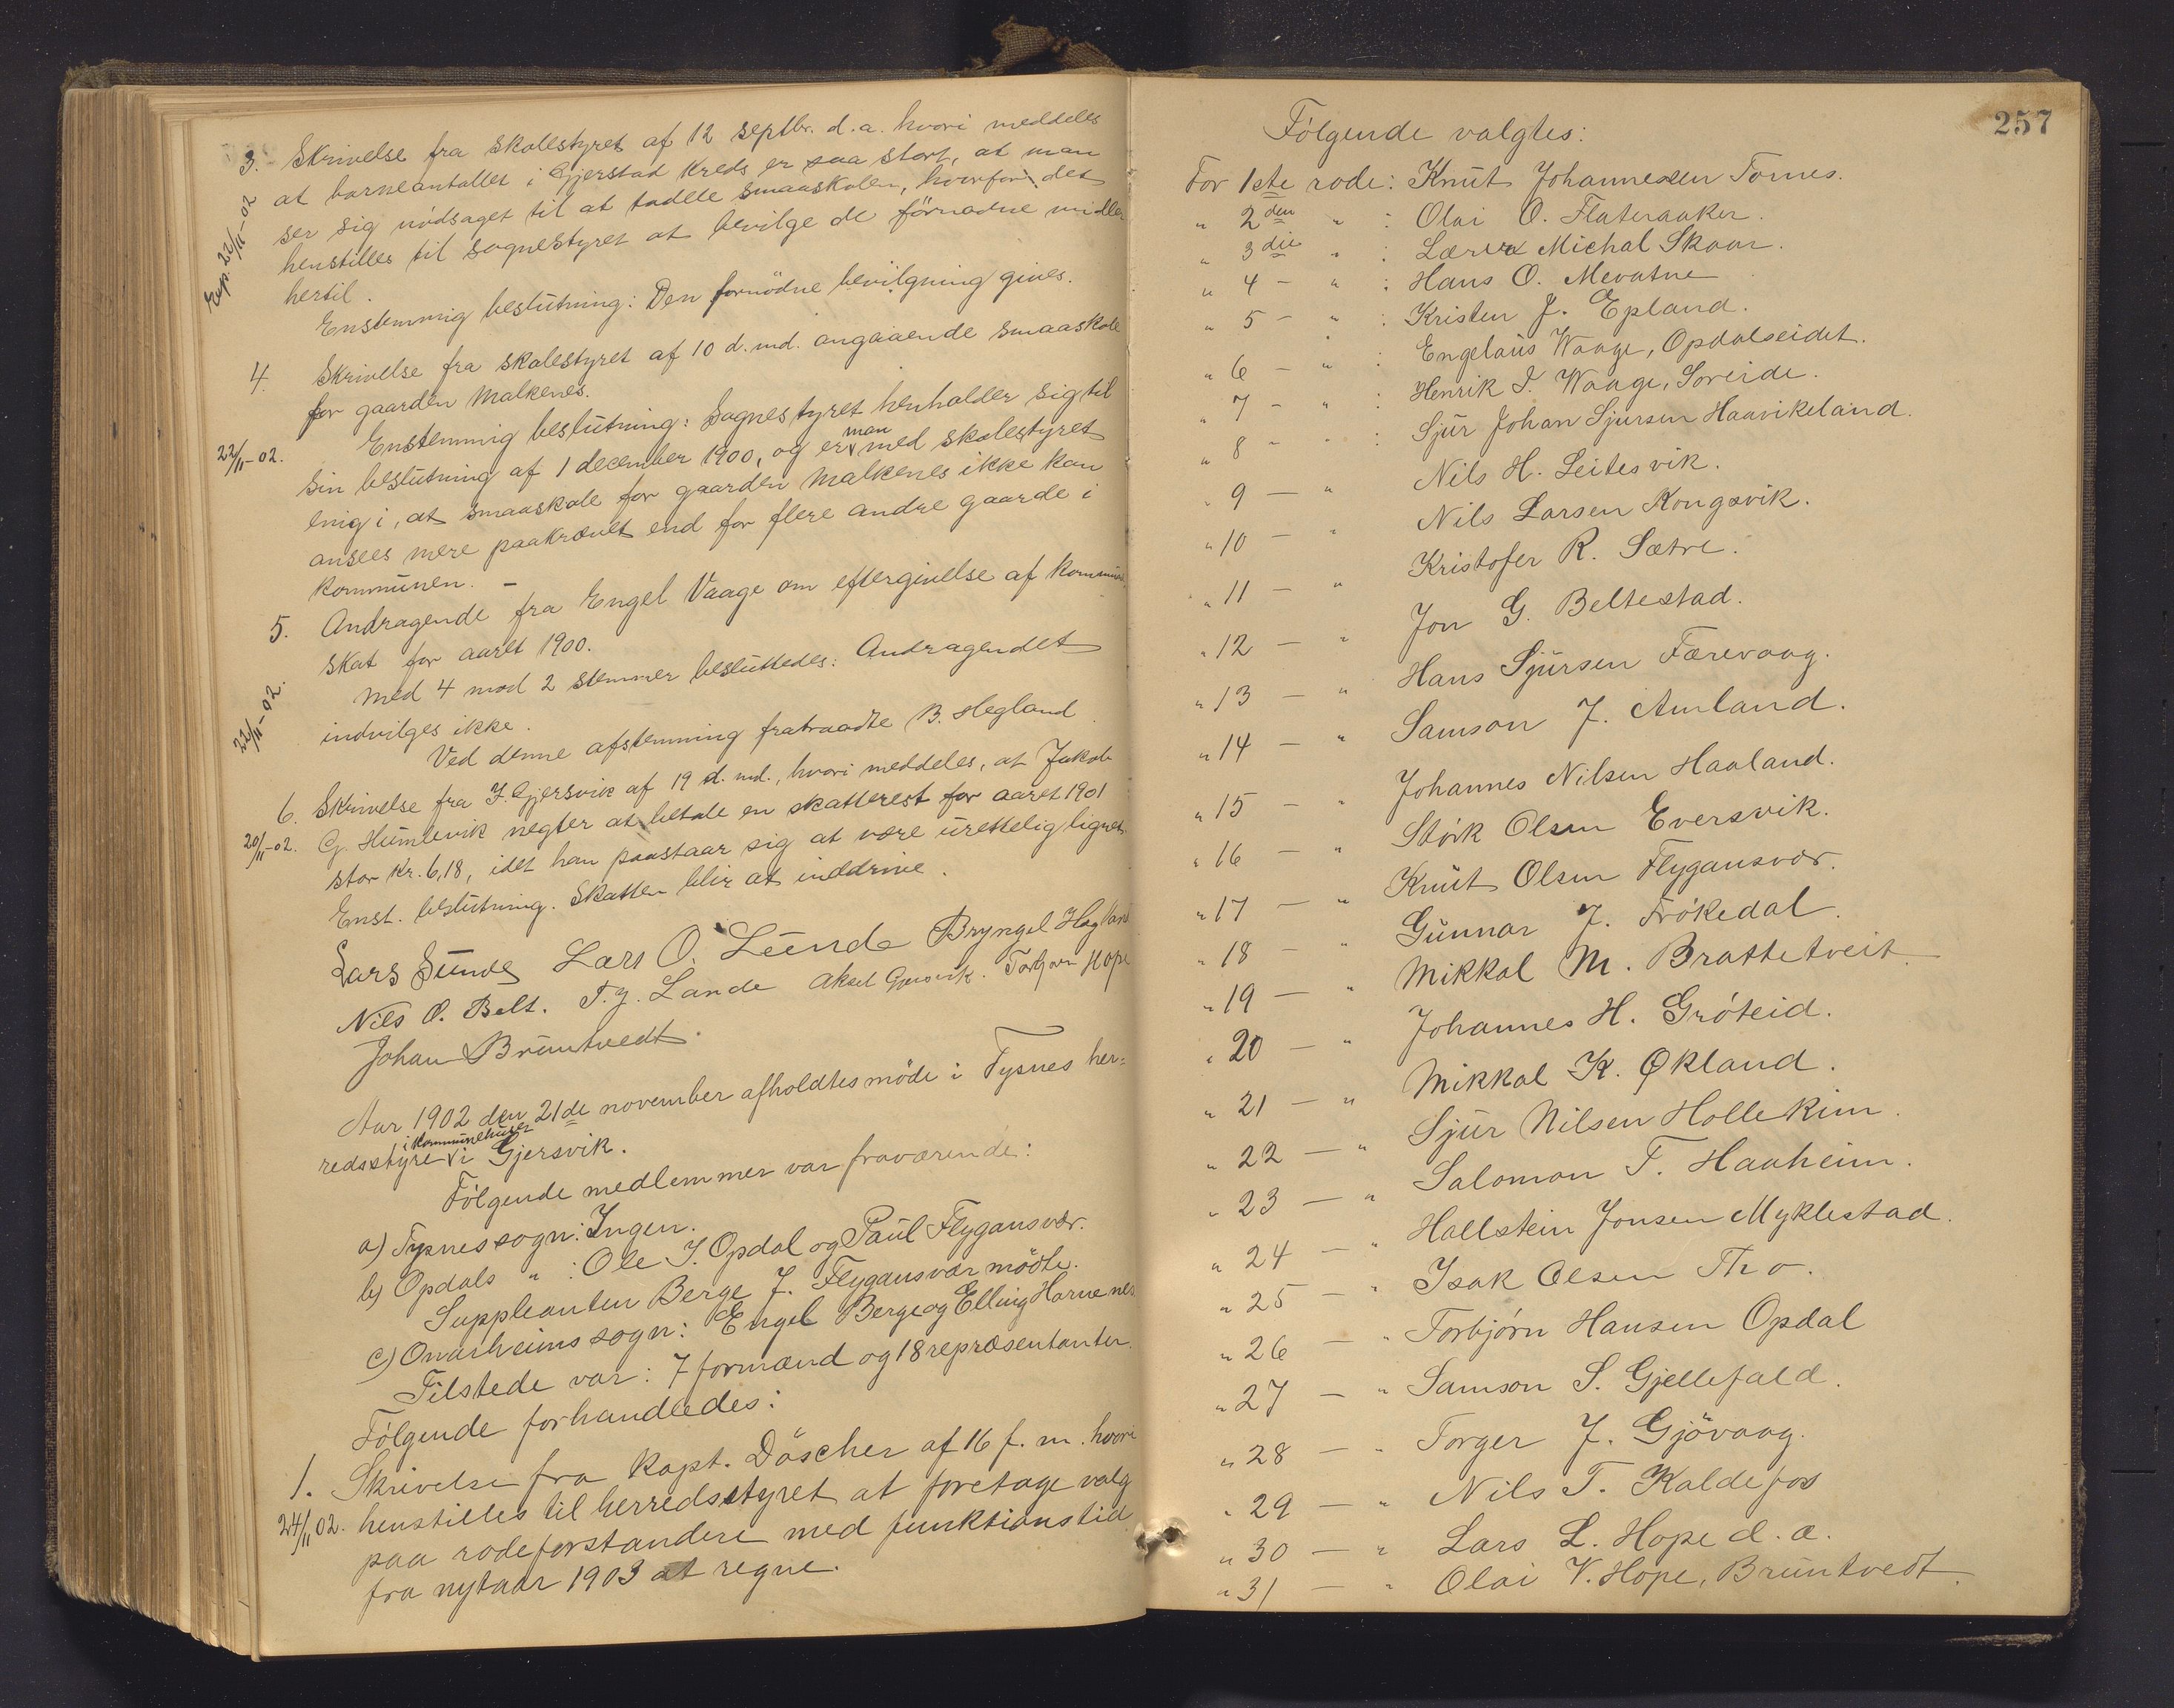 3. Skrivelse fra skolestyret af 12 septbr. d.a. hvori meddeles
at barneantallet i Gjerstad kreds er saa stort, at man
ser sig nödsaget til at todele smaaskolen, hvorfor det
henstilles til sognestyret at bevilge de förnødne midler
hertil.
Exp. 22/11-02
Enstemmig beslutning: Den fornödne bevilgning gives.
4. Skrivelse fra skolestyret af 10 d. md. angaaende smaaskole
for gaarden Malkenes.
22/11-02. Enstemmig beslutning: Sognestyret henholder sig til
sin beslutning af 1 december 1900, og er man med skolestyret
enig i, at smaaskole for gaarden Malkenes ikke kan
ansees mere paakrævet end for flere andre gaarde i
kommunen. -
5. Andragende fra Engel Vaage om eftergivelse af kommune
skat for aaret 1900.
Med 4 mod 2 stemmer besluttedes: Andragendet
indvilges ikke.
22/11-02.
Ved denne afstemning fratraadte B. Hegland.
6. Skrivelse fra J. Gjersvik af 19 d. md., hvori meddeles, at Jakob
20/11-02. G. Humlevik negter at betale en skatterest for aaret 1901
stor kr. 6,18, idet han paastaar sig at være urettelig lignet.
Enst. beslutning. Skatten blir at inddrive.
Lars Sunde Lars O. Lunde Bryngel Hegland
Nils O. Belt. T. J. Lande Aksel Gjersvik. Torbjørn Hope
Johan Bruntvedt.
Aar 1902 den 21de november afholdtes möde i Tysnes her=
redsstyre i kommunehuset i Gjersvik.
Følgende medlemmer var fraværende:
a) Tysnes sogn: Ingen.
b) Opdals " : Ole J. Opdal og Paul Flygansvær.
Suppleanten Berge J. Flygansvær mödte.
c) Onarheims sogn: Engel Berge og Elling Harnenes
Tilstede var: 7 formænd og 18 repræsentanter.
Følgende forhandledes:
1. Skrivelse fra Kapt. Döscher af 16 f. m. hvori
24/11 02. henstilles til herredsstyret at foretage valg
paa rodeforstandere med funktionstid
fra nytaar 1903 at regne.
257
Følgende valgtes:
For 1ste rode: Knut Johannessen Tornes.
" 2den " : Olai O. Flateraaker.
" 3die " : Lærer Michal Skaar.
" 4 - " : Hans O. Mevatne
" 5 - " : Kristen J. Epland.
" 6 - " : Engelaus Waage, Opdalseidet.
" 7 - " : Henrik I. Waage, Soreide.
" 8 - " : Sjur Johan Sjursen Haavikeland.
" 9 - " Nils H. Leitesvik.
" 10 - " Nils Larsen Kongsvik.
" 11 - " Kristofer R. Sætre.
" 12 - " Jon G. Beltestad.
" 13 - " Hans Sjursen Færevaag.
" 14 - " Samson J. Amland.
" 15 - " Johannes Nilsen Haaland.
" 16 - " Störk Olsen Eversvik.
" 17 - " Knut Olsen Flygansvær.
" 18 - " Gunnar J. Frøkedal.
" 19 - " Mikkal M. Brattetveit.
" 20 - " Johannes H. Grøteid.
" 21 - " Mikkal K. Økland.
" 22 - " Sjur Nilsen Hollekim.
" 23 - " Salomon T. Haaheim.
" 24 - " Hallstein Jonsen Myklestad.
" 25 - " Isak Olsen Tho.
" 26 - " Torbjørn Hansen Opdal
" 27 - " Samson S. Gjellefald.
" 28 - " Torger J. Gjövaag.
" 29 - " Nils T. Kaldefos
" 30 - " Lars L. Hope d. æ.
" 31 - " Olai V. Hope, Bruntvedt.